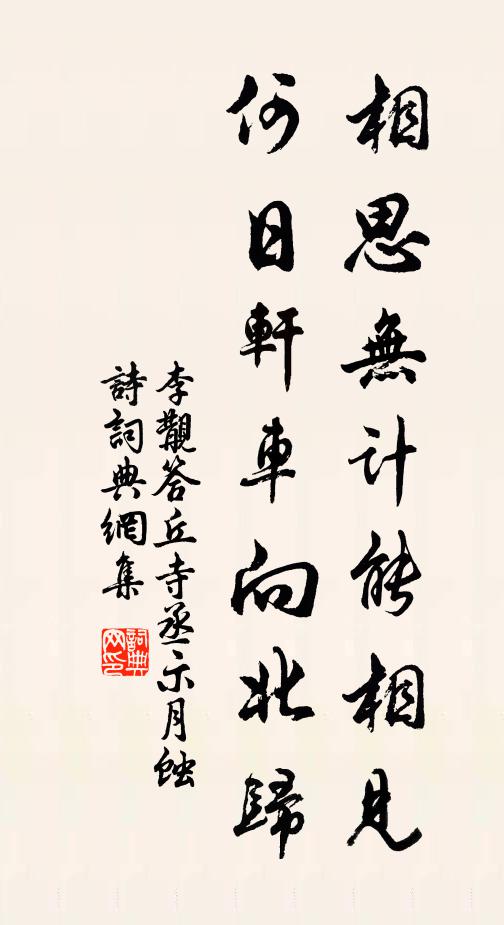 相思無计能相見
何日軒車向北歸
李觀答丘寺丞示月蝕
詩詞典網集
詞典网印